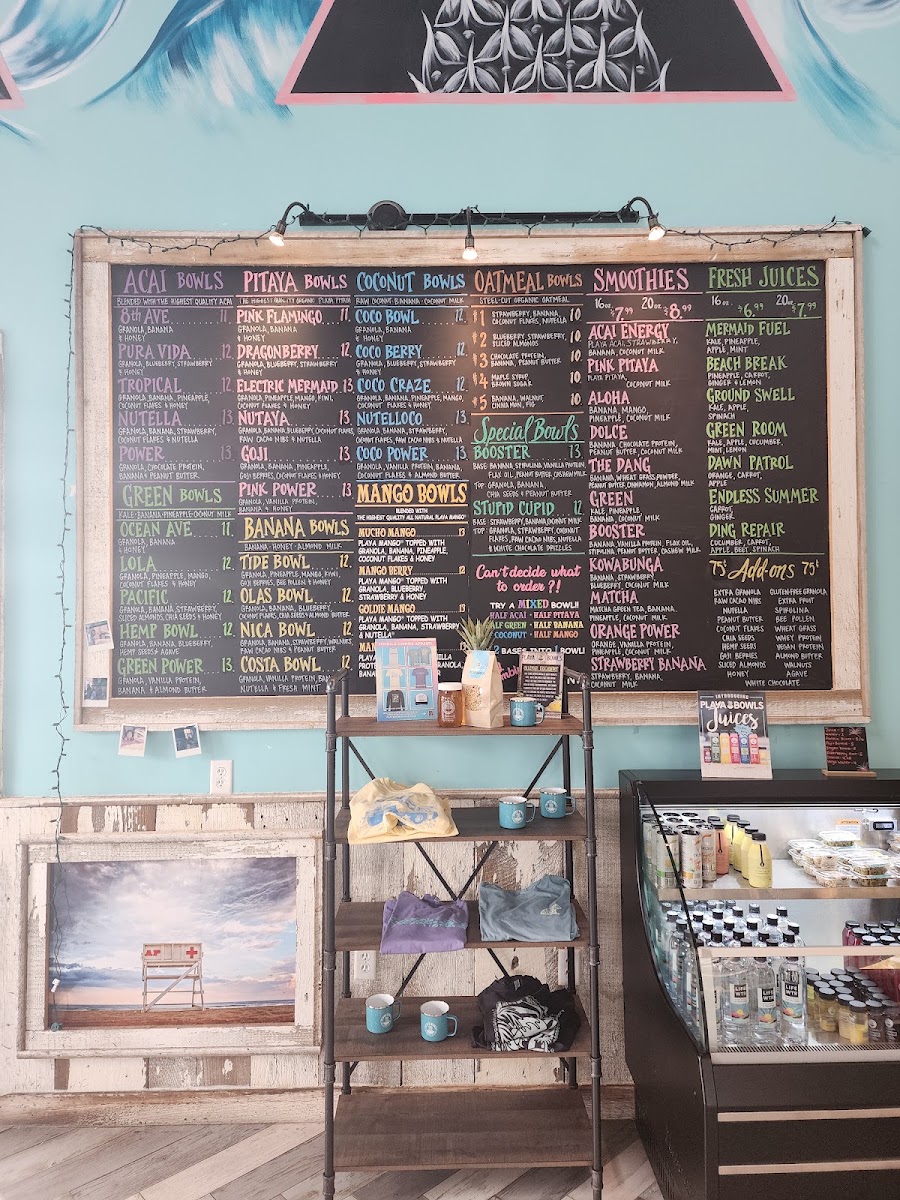 ACAI BOWLS
BLENDED WITH THE HIGHEST QUALITY ACAI
8th AVE 11.
GRANOLA, BANANA
& HONEY
PURA VIDA 12.
GRANOLA, BLUEBERRY, STRAWBERRY
& HONEY
TROPICAL 12.
GRANOLA, BANANA, PINEAPPLE,
COCONUT FLAKES & HONEY
NUTELLA 13.
GRANOLA, BANANA, STRAWBERRY,
COCONUT FLAKES & NUTELLA
POWER 13.
GRANOLA, CHOCOLATE PROTEIN,
BANANA & PEANUT BUTTER
GREEN BOWLS
KALE·BANANA·PINEAPPLE·COCONUT MILK
OCEAN AVE 11.
GRANOLA, BANANA
& HONEY
LOLA 12.
GRANOLA, PINEAPPLE, MANGO,
COCONUT FLAKES & HONEY
PACIFIC 12.
GRANOLA, BANANA, STRAWBERRY,
SLICED ALMONDS, CHIA SEEDS & HONEY
HEMP BOWL 12.
GRANOLA, BANANA, BLUEBERRY,
HEMP SEEDS & AGAVE
GREEN POWER 13.
GRANOLA, VANILLA PROTEIN,
BANANA & ALMOND BUTTER
PITAYA BOWLS
THE HIGHEST QUALITY ORGANIC PLAYA PITAYA
PINK FLAMINGO 11.
GRANOLA, BANANA
& HONEY
DRAGONBERRY 12.
GRANOLA, BLUEBERRY, STRAWBERRY
& HONEY
ELECTRIC MERMAID 13.
GRANOLA, BANANA, PINEAPPLE, MANGO, KIWI,
COCONUT FLAKES & HONEY
NUTAYA 13.
GRANOLA, BANANA, BLUEBERRY, COCONUT FLAKES
RAW CACAO NIBS & NUTELLA
GOJI 13.
GRANOLA, BANANA, PINEAPPLE,
GOJI BERRIES, COCONUT FLAKES & HONEY
PINK POWER 13.
GRANOLA, VANILLA PROTEIN,
BANANA &
BANANA BOWLS
BANANA·HONEY·ALMOND MILK
TIDE BOWL 12.
GRANOLA, PINEAPPLE, MANGO, KIWI,
GOJI BERRIES, BEE POLLEN & HONEY
OLAS BOWL 12.
GRANOLA, BANANA, BLUEBERRY,
COCONUT FLAKES, CHIA SEEDS & ALMOND BUTTER
NICA BOWL 12.
GRANOLA, BANANA, STRAWBERRY, WALNUTS,
RAW CACAO NIBS & HONEY
COSTA BOWL 12.
GRANOLA, VANILLA PROTEIN, BANANA,
NUTELLA & FRESH MINT
COCONUT BOWLS
RAW COCONUT·BANANA·COCONUT MILK
COCO BOWL 11.
GRANOLA, BANANA
& HONEY
COCO BERRY 12.
GRANOLA, BLUEBERRY, STRAWBERRY
& HONEY
COCO CRAZE 12.
GRANOLA, BANANA, PINEAPPLE, MANGO,
COCONUT FLAKES & HONEY
NUTELLOCO 13.
GRANOLA, BANANA, STRAWBERRY,
COCONUT FLAKES, RAW CACAO NIBS & NUTELLA
COCO POWER 13.
GRANOLA, VANILLA PROTEIN, BANANA,
COCONUT FLAKES & ALMOND BUTTER
MANGO BOWLS
BLENDED WITH
THE HIGHEST QUALITY ALL NATURAL PLAYA MANGO
MUCHO MANGO 13
PLAYA MANGO TOPPED WITH
GRANOLA, BANANA, PINEAPPLE,
COCONUT FLAKES & HONEY
MANGO BERRY 12
PLAYA MANGO TOPPED WITH
GRANOLA, BLUEBERRY,
STRAWBERRY & HONEY
GOLDIE MANGO 13
PLAYA MANGO TOPPED WITH
GRANOLA, BANANA, STRAWBERRY
& NUTELLA
OATMEAL BOWLS
STEEL-CUT ORGANIC OATMEAL
#1 STRAWBERRY, BANANA,
COCONUT FLAKES, NUTELLA 10.
#2 BLUEBERRY, STRAWBERRY,
SLICED ALMONDS 10.
#3 CHOCOLATE PROTEIN,
BANANA, PEANUT BUTTER 10.
#4 MAPLE SYRUP,
BROWN SUGAR 10.
#5 BANANA, WALNUT,
CINNAMON, FIG 10.
Special Bowls
BOOSTER 13.
BASE: BANANA, SPIRULINA, VANILLA PROTEIN,
FLAX OIL, PEANUT BUTTER, CASHEW MILK
TOP: GRANOLA, BANANA,
CHIA SEEDS & PEANUT BUTTER
STUPID CUPID 12.
BASE: STRAWBERRY, BANANA, COCONUT MILK
TOP: GRANOLA, STRAWBERRY, COCONUT
FLAKES, RAW CACAO NIBS, NUTELLA
& WHITE CHOCOLATE DRIZZLES
Can't decide what
to order?!
TRY A MIXED BOWL!!
HALF ACAI · HALF PITAYA
HALF GREEN · HALF BANANA
COCONUT · HALF MANGO
2 BASES INTO 1 BOWL!
SMOOTHIES
16oz. $7.99 20oz. $8.99
ACAI ENERGY
PLAYA ACAI, STRAWBERRY,
BANANA, COCONUT MILK
PINK PITAYA
PLAYA PITAYA,
COCONUT MILK
ALOHA
BANANA, MANGO,
PINEAPPLE, COCONUT MILK
DOLCE
BANANA, CHOCOLATE PROTEIN,
PEANUT BUTTER, COCONUT MILK
THE DANG
BANANA, WHEAT GRASS POWDER,
PEANUT BUTTER, CINNAMON, ALMOND MILK
GREEN
KALE, PINEAPPLE,
BANANA, COCONUT MILK
BOOSTER
BANANA, VANILLA PROTEIN, FLAX OIL,
SPIRULINA, PEANUT BUTTER, CASHEW MILK
KOWABUNGA
BANANA, STRAWBERRY,
BLUEBERRY, COCONUT MILK
MATCHA
MATCHA GREEN TEA, BANANA,
PINEAPPLE, COCONUT MILK
ORANGE POWER
ORANGE, VANILLA PROTEIN,
PINEAPPLE, COCONUT MILK
STRAWBERRY BANANA
STRAWBERRY, BANANA,
COCONUT MILK
FRESH JUICES
16 oz. $6.99 20oz. $7.99
MERMAID FUEL
KALE, PINEAPPLE,
APPLE, MINT
BEACH BREAK
PINEAPPLE, CARROT,
GINGER & LEMON
GROUND SWELL
KALE, APPLE,
SPINACH
GREEN ROOM
KALE, APPLE, CUCUMBER,
MINT, LEMON
DAWN PATROL
CARROT,
APPLE
ENDLESS SUMMER
CARROT,
GINGER
DING REPAIR
CUCUMBER, CARROT,
APPLE, BEET, SPINACH
75¢ Add-ons 75¢
EXTRA GRANOLA
RAW CACAO NIBS
NUTELLA
PEANUT BUTTER
COCONUT FLAKES
CHIA SEEDS
HEMP SEEDS
GOJI BERRIES
SLICED ALMONDS
HONEY
GLUTEN FREE GRANOLA
EXTRA FRUIT
SPIRULINA
BEE POLLEN
WHEAT GRASS
WHEY PROTEIN
VEGAN PROTEIN
ALMOND BUTTER
WALNUTS
AGAVE
WHITE CHOCOLATE
INTRODUCING
PLAYA BOWLS
Juices
AP
LIFE
WTR
LIFE
WTR
LIFE
WTR